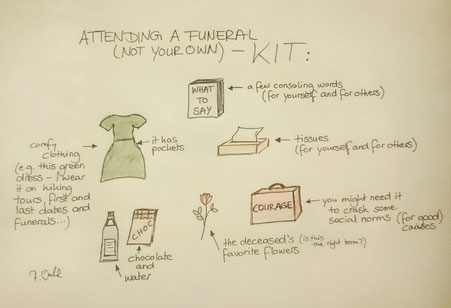 ATTENDING A FUNERAL
(NOT YOUR OWN) - KIT:
WHAT
TO
SAY
a few consoling words
(for yourself and for others)
comfy
clothing
(e.g. this green
dress - I wear
it on hiking
tours, first and
last dates and
funerals...)
it has
pockets
tissues
(for yourself and for others)
CHOC
chocolate
and
water
the deceased's (is this
the right term?)
favorite flowers
COURAGE
you might need it
to crash some
social norms (for good
causes)